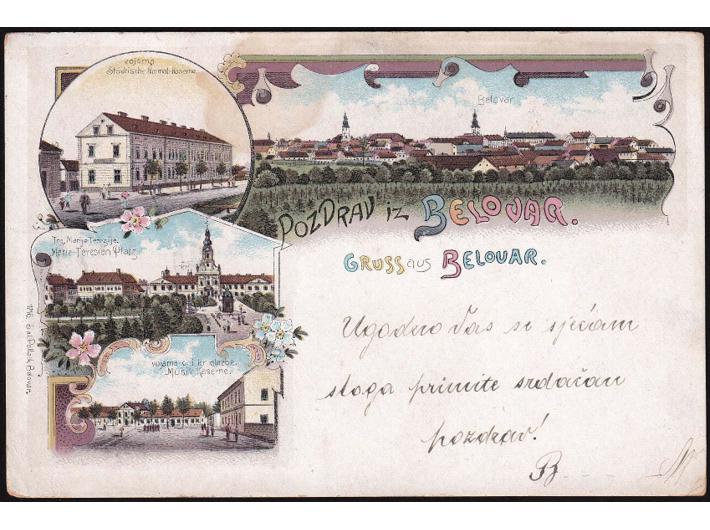 vojarna
Städtische Normal-Kaserne
Belovár
POZDRAV iz BELOVAR.
Trg. Marije Terezije.
Marie-Teresien Platz
GRUSS aus BELOVAR.
Ugodno Vas se sjećam
stoga primite srdačan
pozdrav!
B
vojarna c. i kr. glazbe.
Musik-Kaserne.